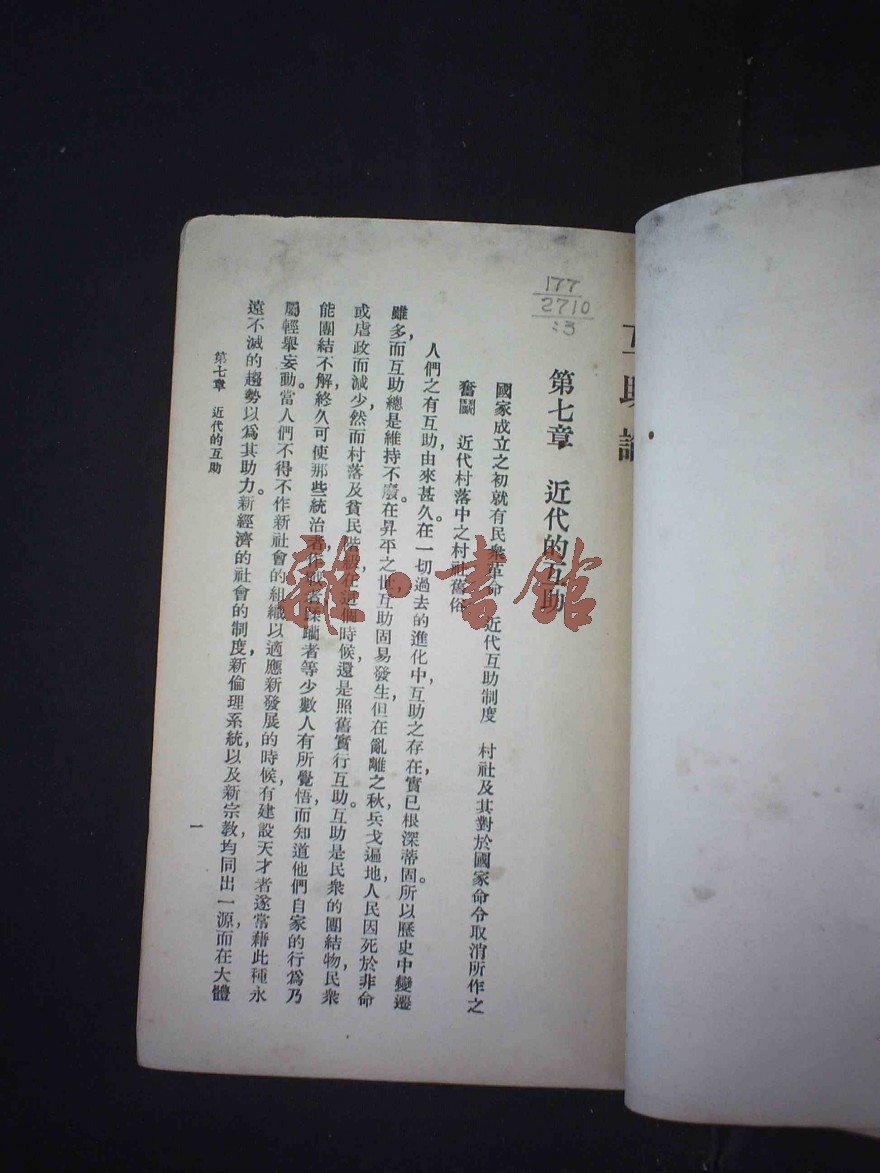 互助論
177
2710
:3
第七章 近代的互助
國家成立之初就有民衆革命 近代互助制度 村社及其對於國家命令取消所作之
奮鬭 近代村落中之村社舊俗
人們之有互助，由來甚久。在一切過去的進化中，互助之存在，實已根深蒂固。所以歷史中變遷
雖多，而互助總是維持不廢。在昇平之世，互助固易發生，但在亂離之秋，兵戈遍地，人民因死於非命，
或虐政而減少，然而村落及貧民階級在這個時候，還是照舊實行互助。互助是民衆的團結物，民衆
能團結不解，終久可使那些統治者，作戰者，蹂躪者等少數人有所覺悟，而知道他們自家的行爲，乃
屬輕舉妄動。當人們不得不作新社會的組織，以適應新發展的時候，有建設天才者，遂常藉此種永
遠不滅的趨勢以爲其助力。新經濟的社會的制度，新倫理系統，以及新宗教，均同出一源，而在大體
第七章 近代的互助
一
雜·書館